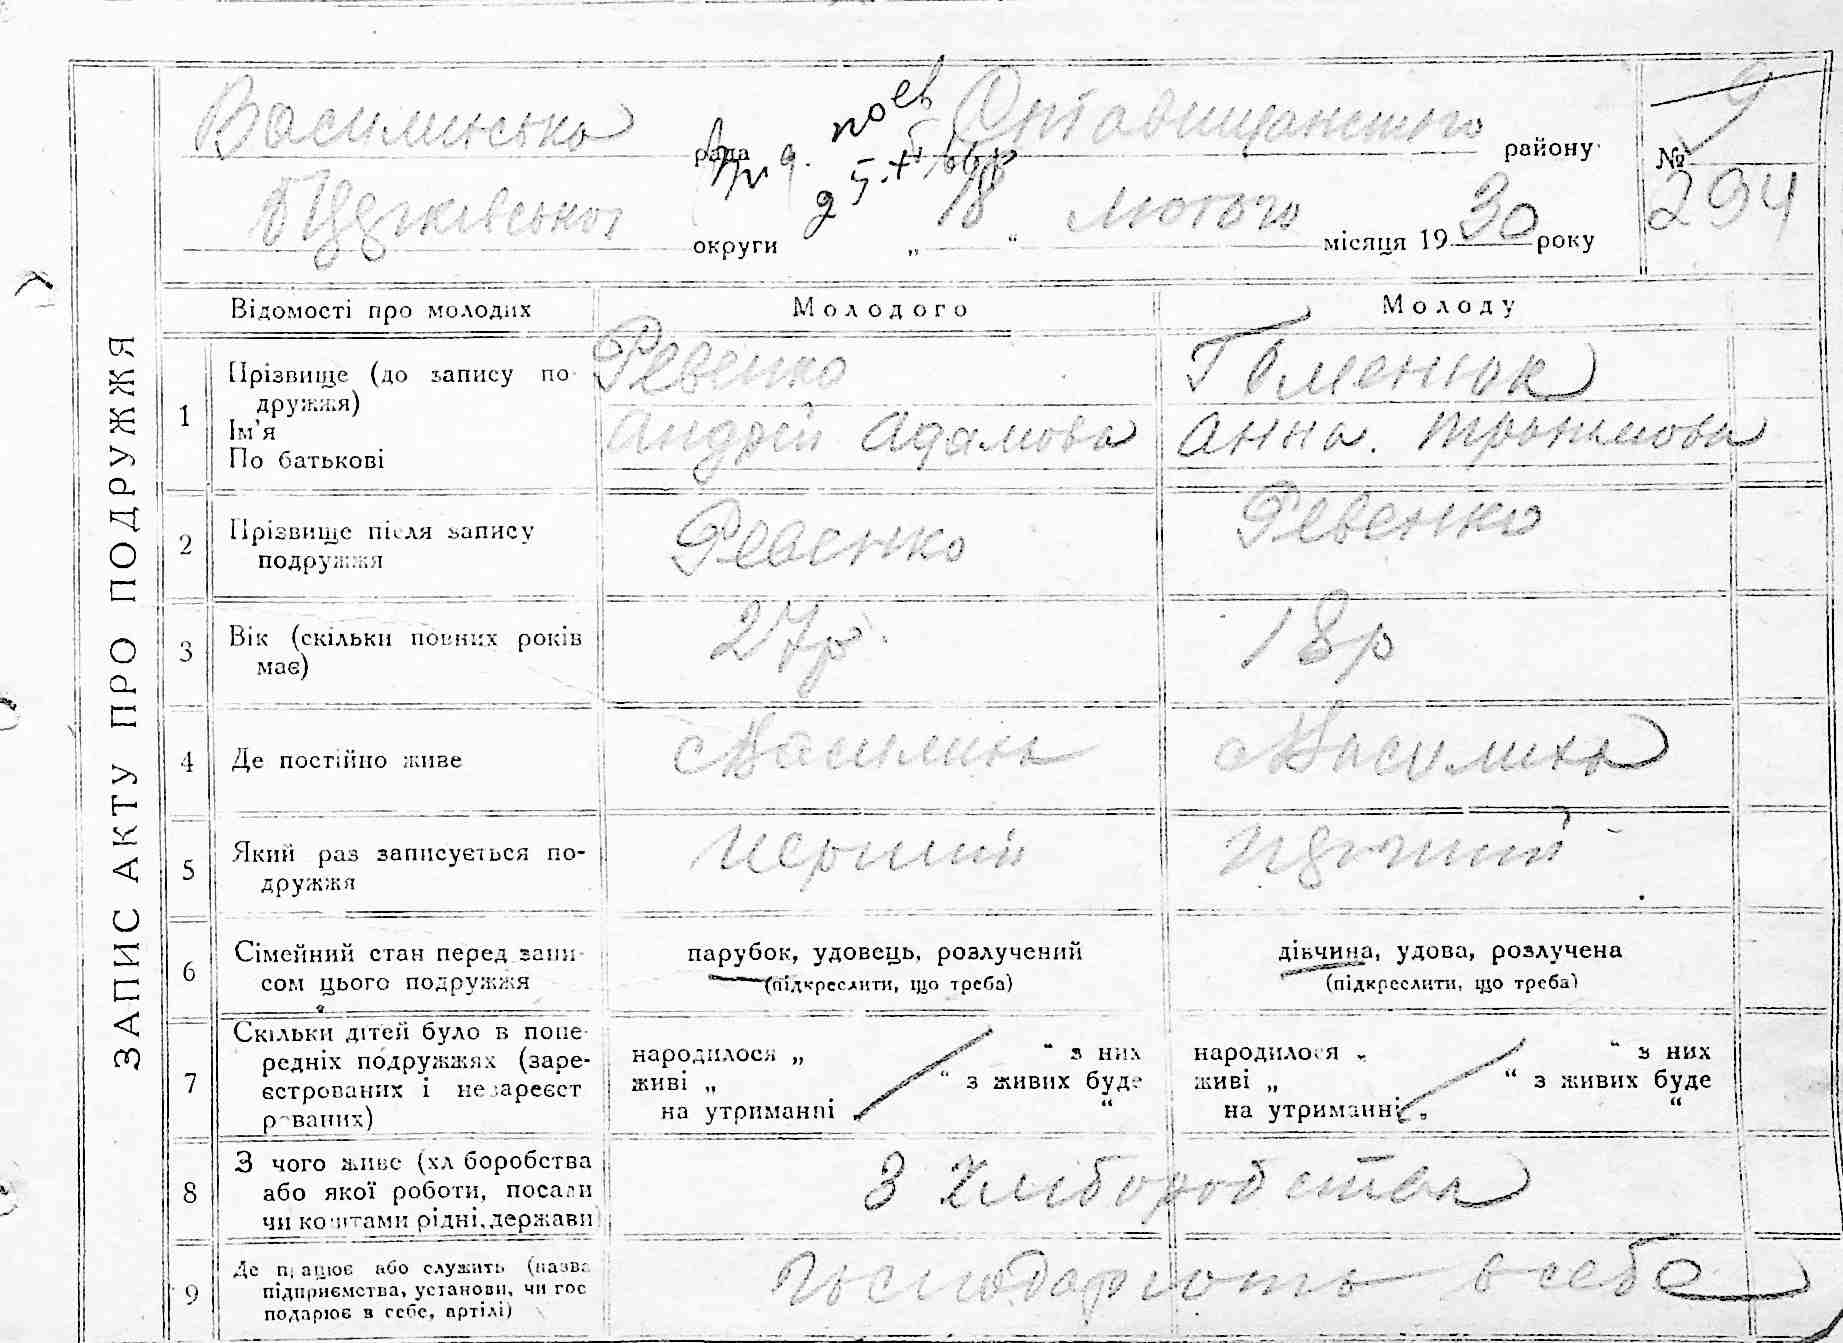 Василиська рада Ортавищанського району № 9
294
округи „ 18 “ лютого місяця 1930 року
ЗАПИС АКТУ ПРО ПОДРУЖЖЯ
Відомості про молодих Молодого Молоду
1 Прізвище (до запису по-
дружжя)
Ревенко Гоменюк
Ім'я
По батькові
Андрій Адамова Анна. Трохимова
2 Прізвище після запису
подружжя
Ревенко Ревенко
3 Вік (скільки повних років
має)
27р. 18р
4 Де постійно живе с Василиха с Василиха
5 Який раз записується по-
дружжя
перший перший
6 Сімейний стан перед запи-
сом цього подружжя
парубок, удовець, розлучений дівчина, удова, розлучена
(підкреслити, що треба) (підкреслити, що треба)
7 Скільки дітей було в попе-
редніх подружжях (заре-
єстрованих і незареєст
рованих)
народилося „ “ з них народилося „ “ з них
живі „ “ з живих буде живі „ “ з живих буде
на утриманні „ “ на утриманні „ “
8 З чого живе (хліборобства
або якої роботи, посади
чи коштами рідні, держави)
З хліборобства
9 Де працює або служить (назва
підприємства, установи, чи гос
подарює в себе, артілі)
Господарюють в себе